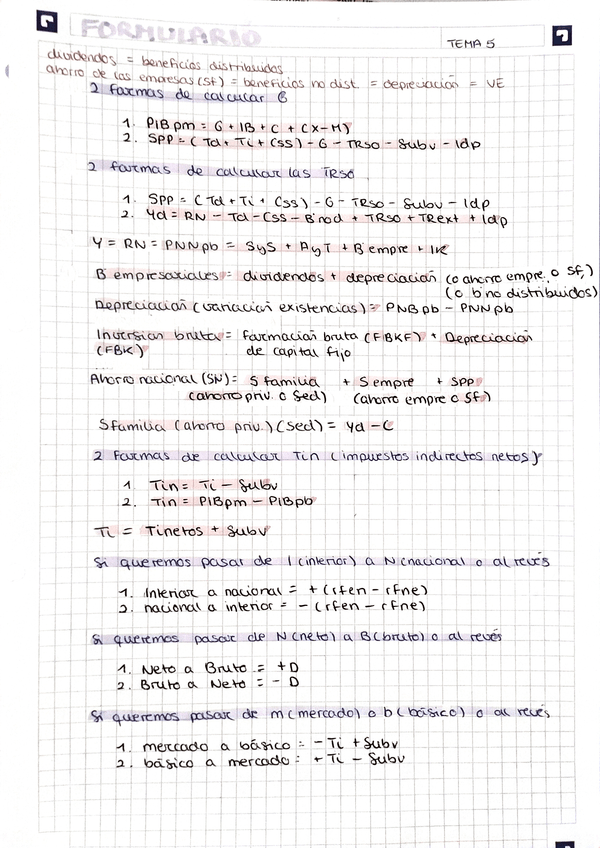 FORMULARIO
TEMA 5
dividendos = beneficios distribuidos
ahorro de las empresas (Sf) = beneficios no dist. = depreciación = VE
2 formas de calcular G
1. PIBpm = G + IB + C + (X-M)
2. SPP = (Td + Ti + Css) - G - TRso - Subv - Idp
2 formas de calcular las TRso
1. SPP = (Td + Ti + Css) - G - TRso - Subv - Idp
2. Yd = RN - Td - Css - Bºnod + TRso + TRext + Idp
Y = RN = PNNpb = SyS + AyT + Bºempre + IK
Bº empresariales = dividendos + depreciación (o ahorro empre. o Sf)
(o bº no distribuidos)
Depreciación (variación existencias) = PNBpb - PNNpb
Inversión bruta = formación bruta (FBKF) + Depreciación
(FBK) de capital fijo
Ahorro nacional (SN) = S familia + S empre + SPP
(ahorro priv. o Sed) (ahorro empre o Sf)
S familia (ahorro priv.) (Sed) = Yd - C
2 formas de calcular Tin (impuestos indirectos netos)
1. Tin = Ti - Subv
2. Tin = PIBpm - PIBpb
Ti = Tinetos + Subv
Si queremos pasar de I (interior) a N (nacional) o al revés
1. Interior a nacional = + (rfen - rfne)
2. nacional a interior = - (rfen - rfne)
Si queremos pasar de N (neto) a B (bruto) o al revés
1. Neto a Bruto = +D
2. Bruto a Neto = - D
Si queremos pasar de m (mercado) o b (básico) o al revés
1. mercado a básico = - Ti + Subv
2. básico a mercado = + Ti - Subv